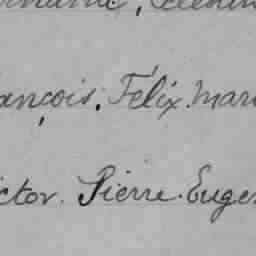 ançois, Félix. Mar
ictor. Pierre. Euge